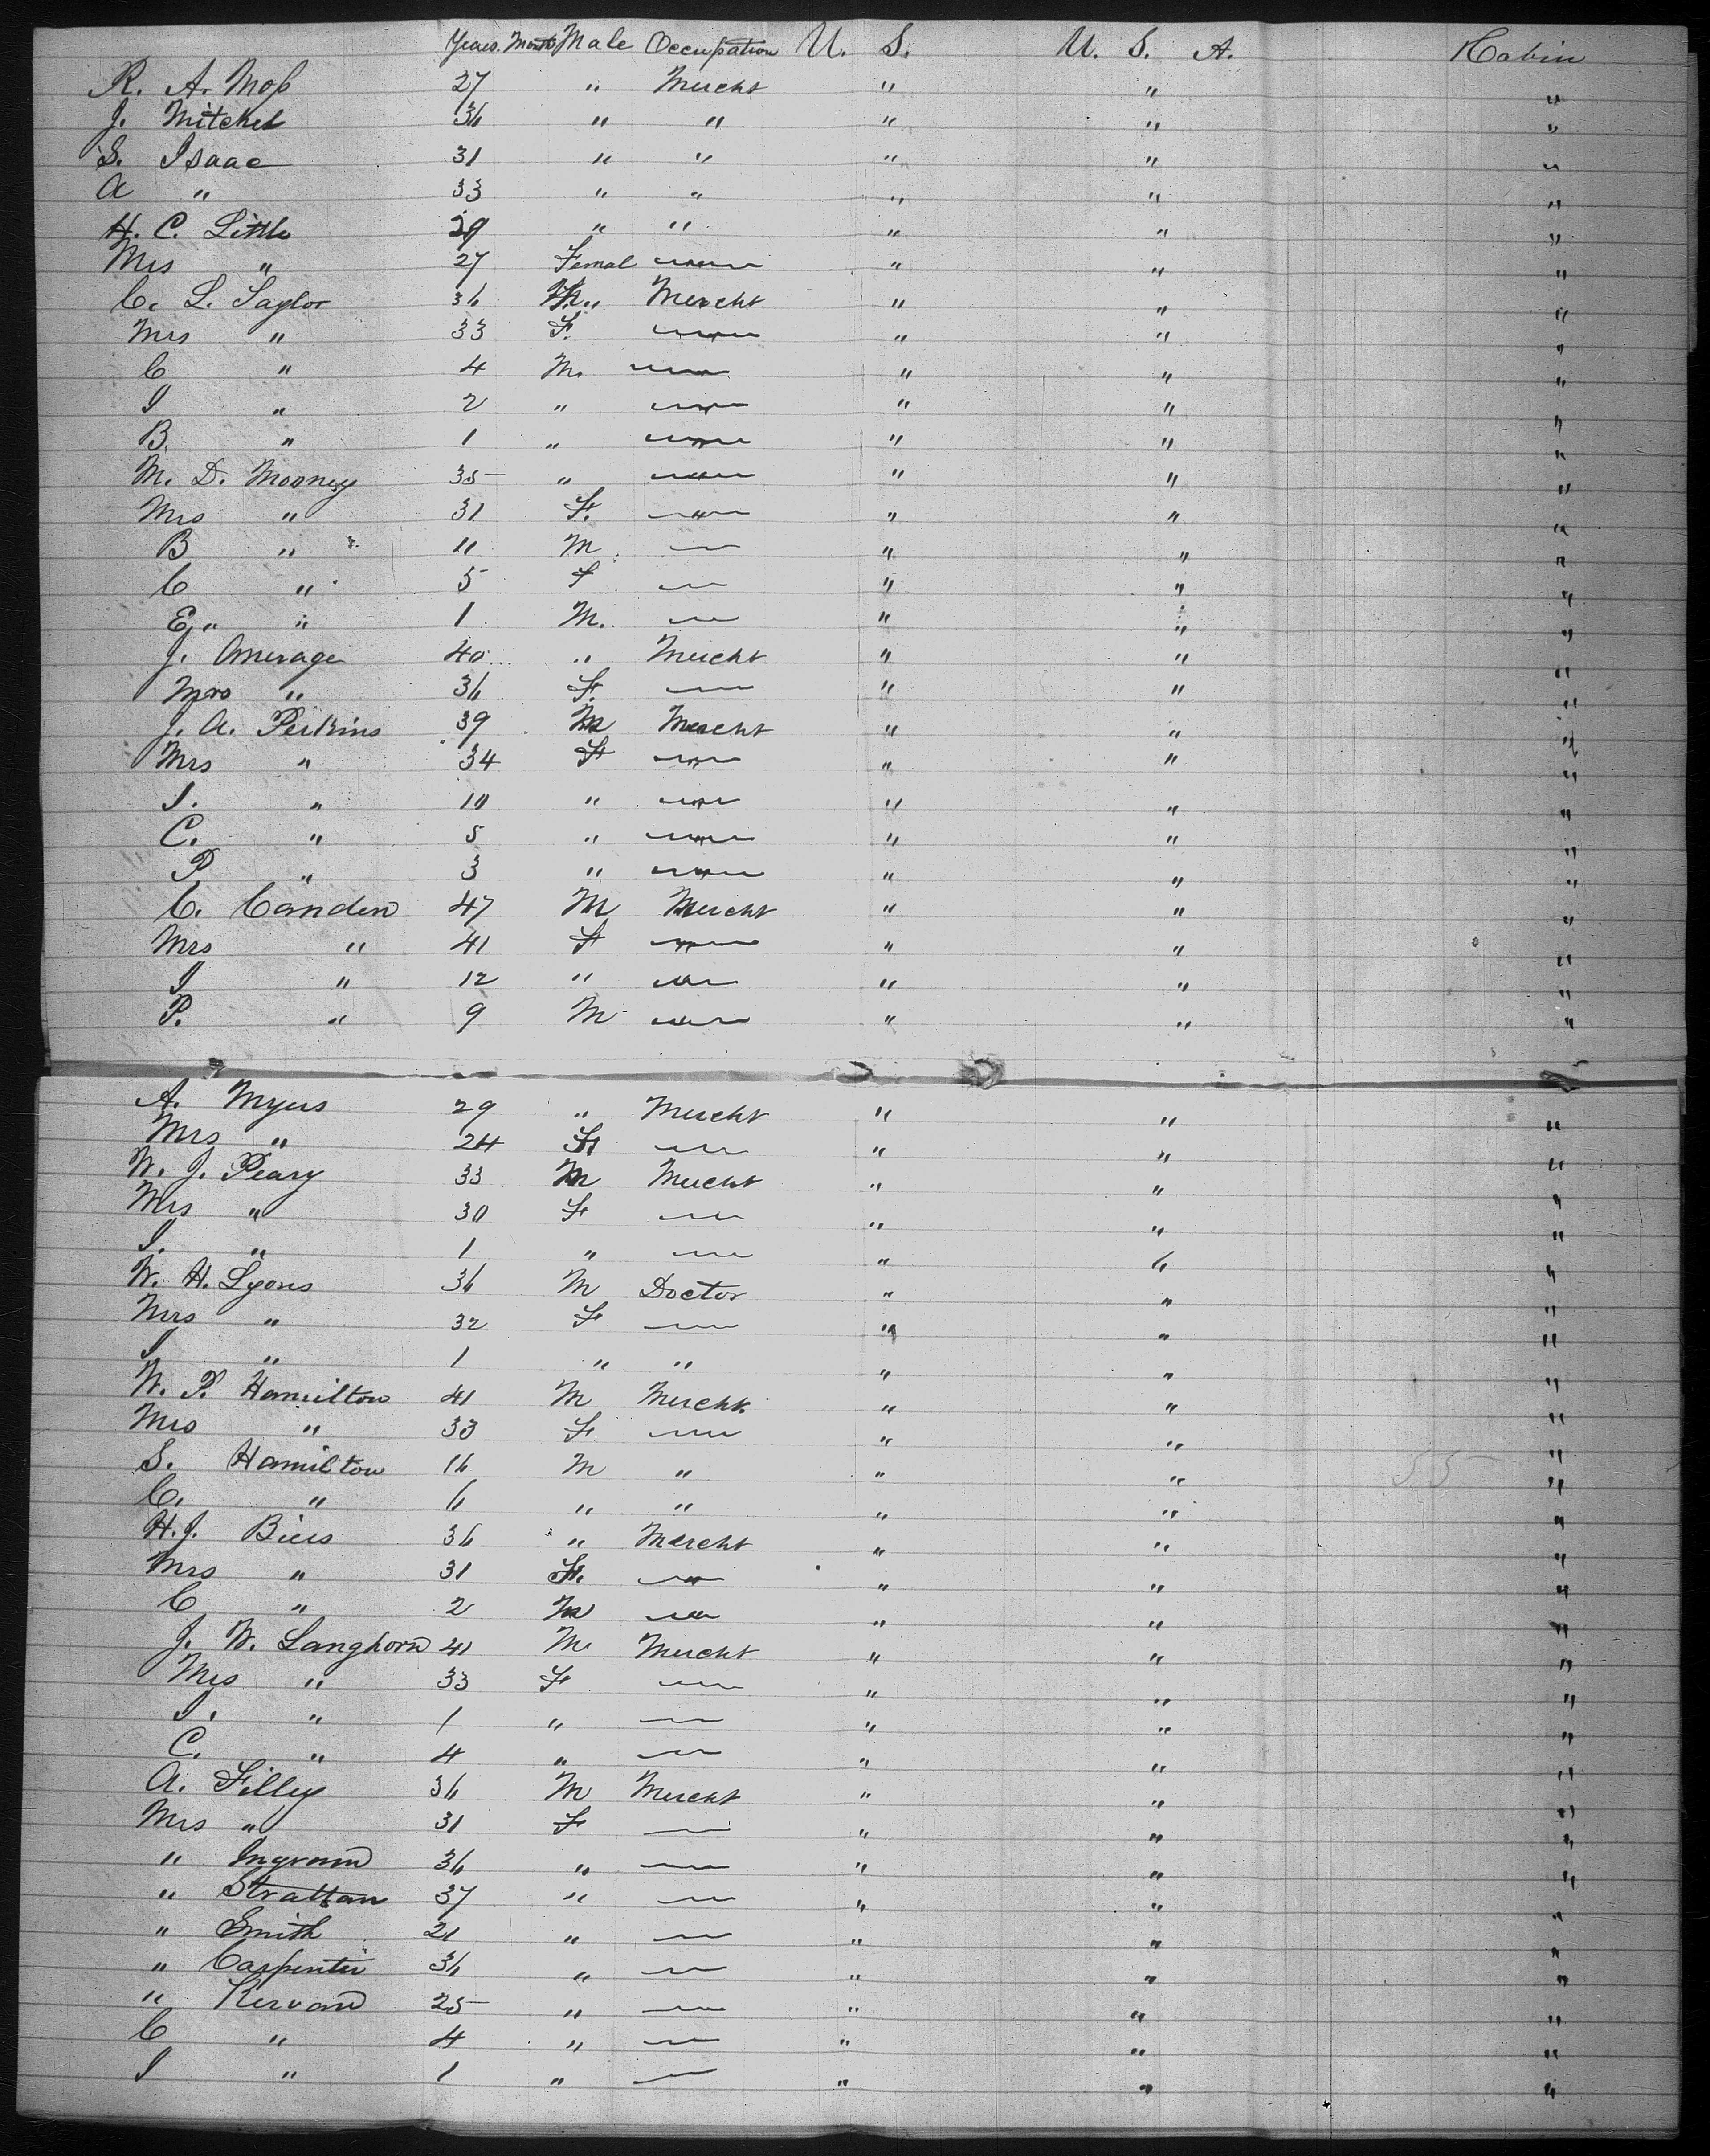 Years. Months Male Occupation U. S. U. S. A. Cabin
R. A. Moss 27 " Mercht " " "
J. Mitchel 36 " " " " "
S. Isaac 31 " " " " "
A " 33 " " " " "
H. C. Little 29 " " " " "
Mrs " 27 Femal — " " "
C. L. Taylor 36 M. Mercht " " "
Mrs " 33 F. — " " "
C " 4 M. — " " "
I " 2 " — " " "
B. " 1 " — " " "
M. D. Mooney 35 " — " " "
Mrs " 31 F. — " " "
B " 11 M. — " " "
C " 5 F — " " "
E " 1 M. — " " "
J. Amerage 40 " Mercht " " "
Mrs " 36 F. — " " "
J. A. Perkins 39 M Mercht " " "
Mrs " 34 F — " " "
I. " 10 " — " " "
C. " 5 " — " " "
P. " 3 " — " " "
C. Canden 47 M Mercht " " "
Mrs " 41 F — " " "
I " 12 " — " " "
P. " 9 M — " " "
A. Myers 29 " Mercht " " "
Mrs " 24 F — " " "
W. J. Peary 33 M Mercht " " "
Mrs " 30 F — " " "
I. " 1 " — " " "
W. H. Lyons 36 M Doctor " " "
Mrs " 32 F — " " "
I " 1 " " " " "
W. P. Hamilton 41 M Mercht " " "
Mrs " 33 F — " " "
S. Hamilton 16 M " " " 55 "
C. " 6 " " " " "
H. J. Biers 36 " Mercht " " "
Mrs " 31 F. — " " "
C " 2 M — " " "
J. W. Langhorn 41 M Mercht " " "
Mrs " 33 F — " " "
I. " 1 " — " " "
C. " 4 " — " " "
A. Filley 36 M Mercht " " "
Mrs " 31 F — " " "
" Ingram 36 " — " " "
" Strattan 37 " — " " "
" Smith 21 " — " " "
" Carpenter 36 " — " " "
" Kervand 25 " — " " "
C " 4 " — " " "
I " 1 " — " " "